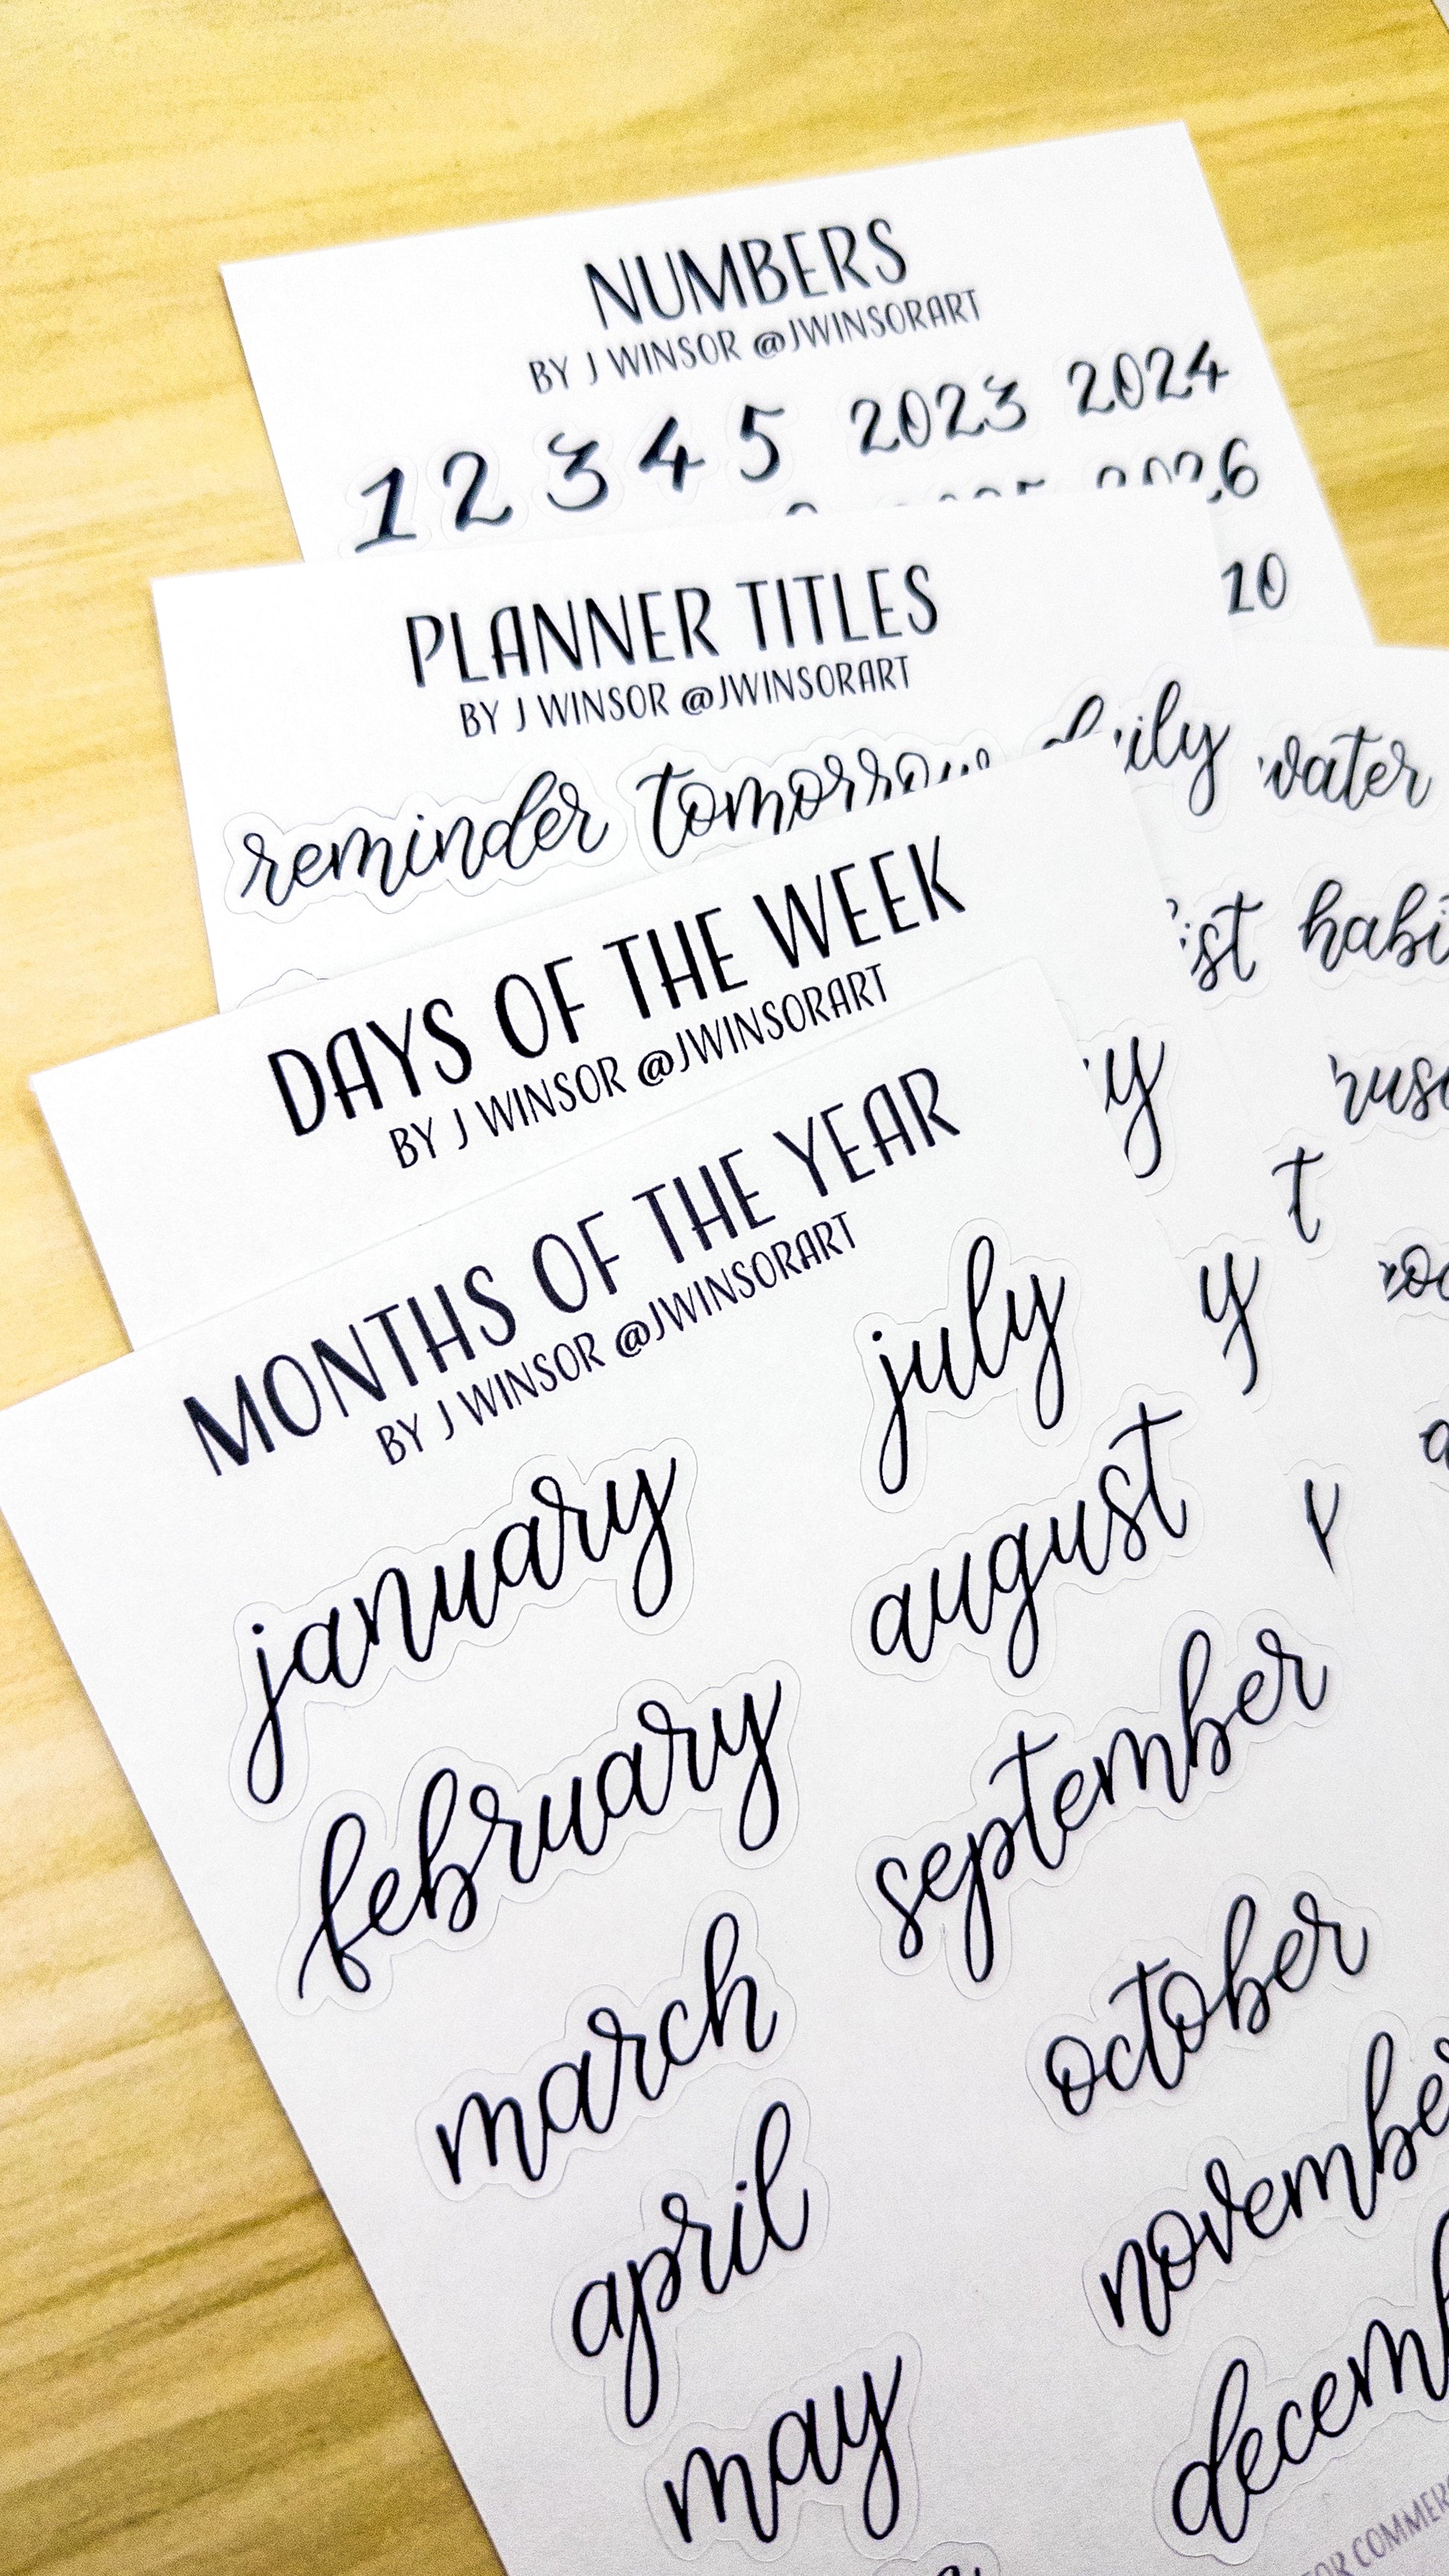 NUMBERS
BY J WINSOR @JWINSORART
1 2 3 4 5 2023 2024
10
PLANNER TITLES
BY J WINSOR @JWINSORART
reminder tomorrow daily water
DAYS OF THE WEEK
BY J WINSOR @JWINSORART
MONTHS OF THE YEAR
BY J WINSOR @JWINSORART
january
february
march
april
may
july
august
september
october
november